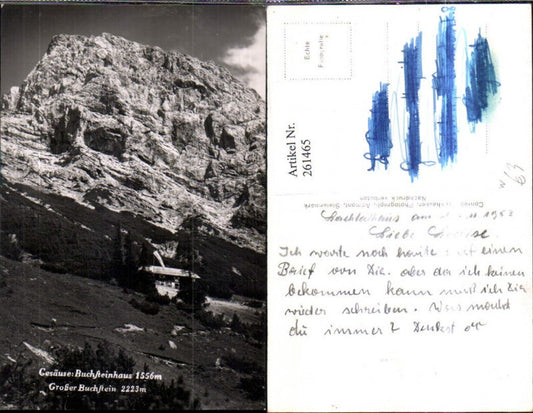 Gesäuse: Buchsteinhaus 1556m
Großer Buchstein 2223m
Echte
Artikel Nr.
261465
Admont, Steiermark
Nachdruck verboten
am
Liebe
Ich warte noch heute auf einen
Brief von Dir. aber da ich keinen
bekommen kann muß ich Dir
wieder schreiben. Was
du immer? Denkst